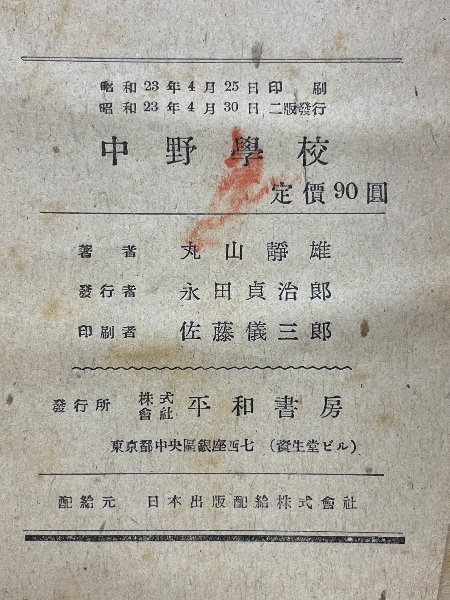 昭和23年4月25日印刷
昭和23年4月30日二版發行
中野學校
定價90圓
著者 丸山靜雄
發行者 永田貞治郎
印刷者 佐藤儀三郎
發行所 株式會社 平和書房
東京都中央區銀座西七 (資生堂ビル)
配給元 日本出版配給株式會社